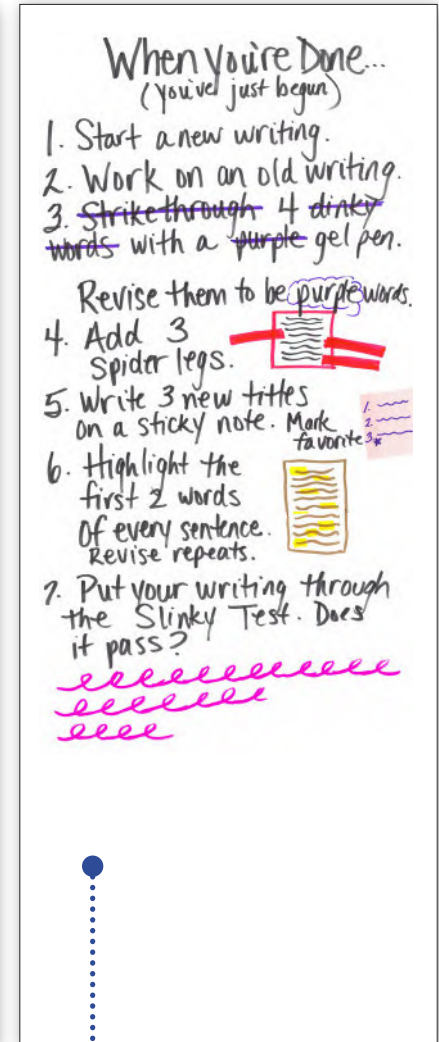 When You're Done...
(you've just begun)
1. Start a new writing.
2. Work on an old writing.
3. Strikethrough 4 dinky
words with a purple gel pen.
Revise them to be purple words.
4. Add 3
Spider legs.
5. Write 3 new titles
on a sticky note. Mark
favorite
1.
2.
3.*
6. Highlight the
first 2 words
of every sentence.
Revise repeats.
7. Put your writing through
the Slinky Test. Does
it pass?